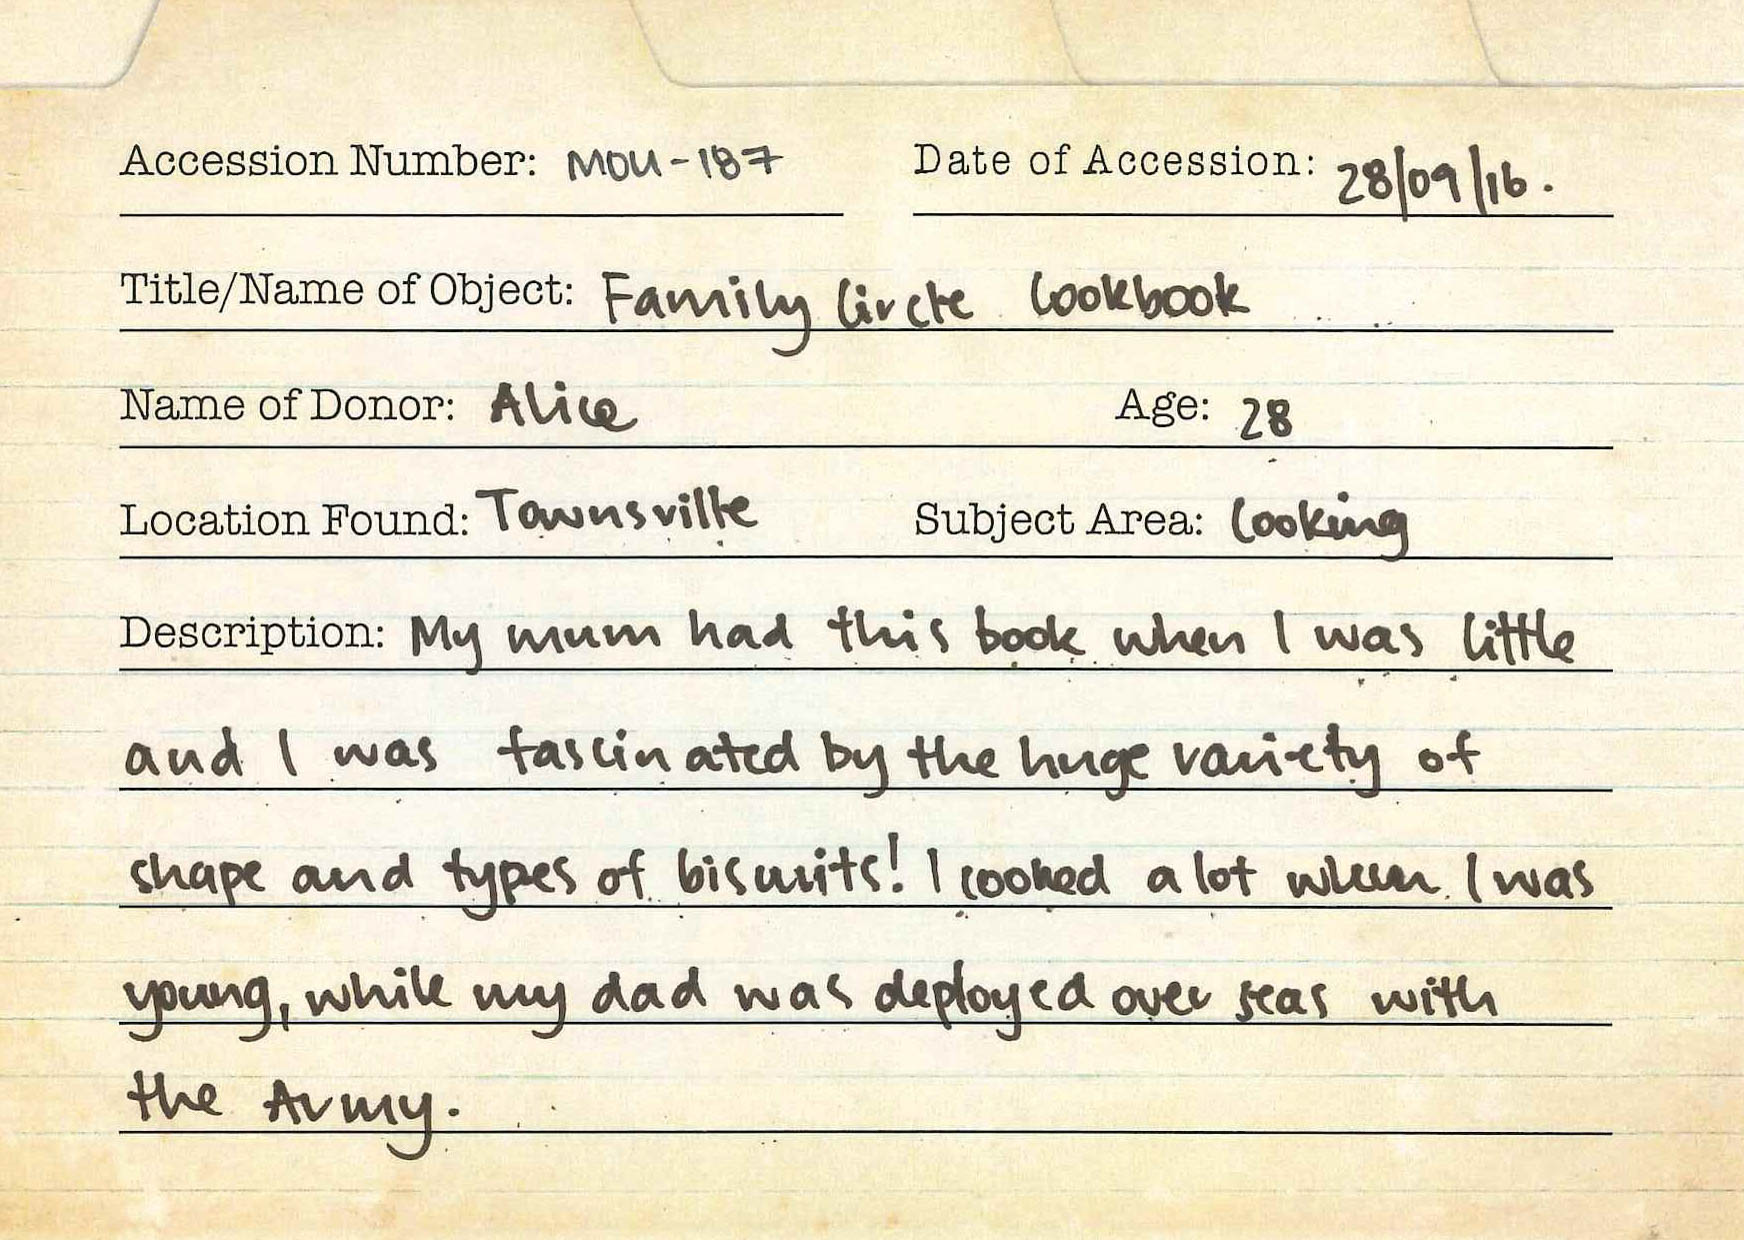 Accession Number: MOU-187 Date of Accession: 28/09/16.
Title/Name of Object: Family Circle Cookbook
Name of Donor: Alice Age: 28
Location Found: Townsville Subject Area: Cooking
Description: My mum had this book when I was little
and I was fascinated by the huge variety of
shape and types of biscuits! I cooked a lot when I was
young, while my dad was deployed over seas with
the Army.